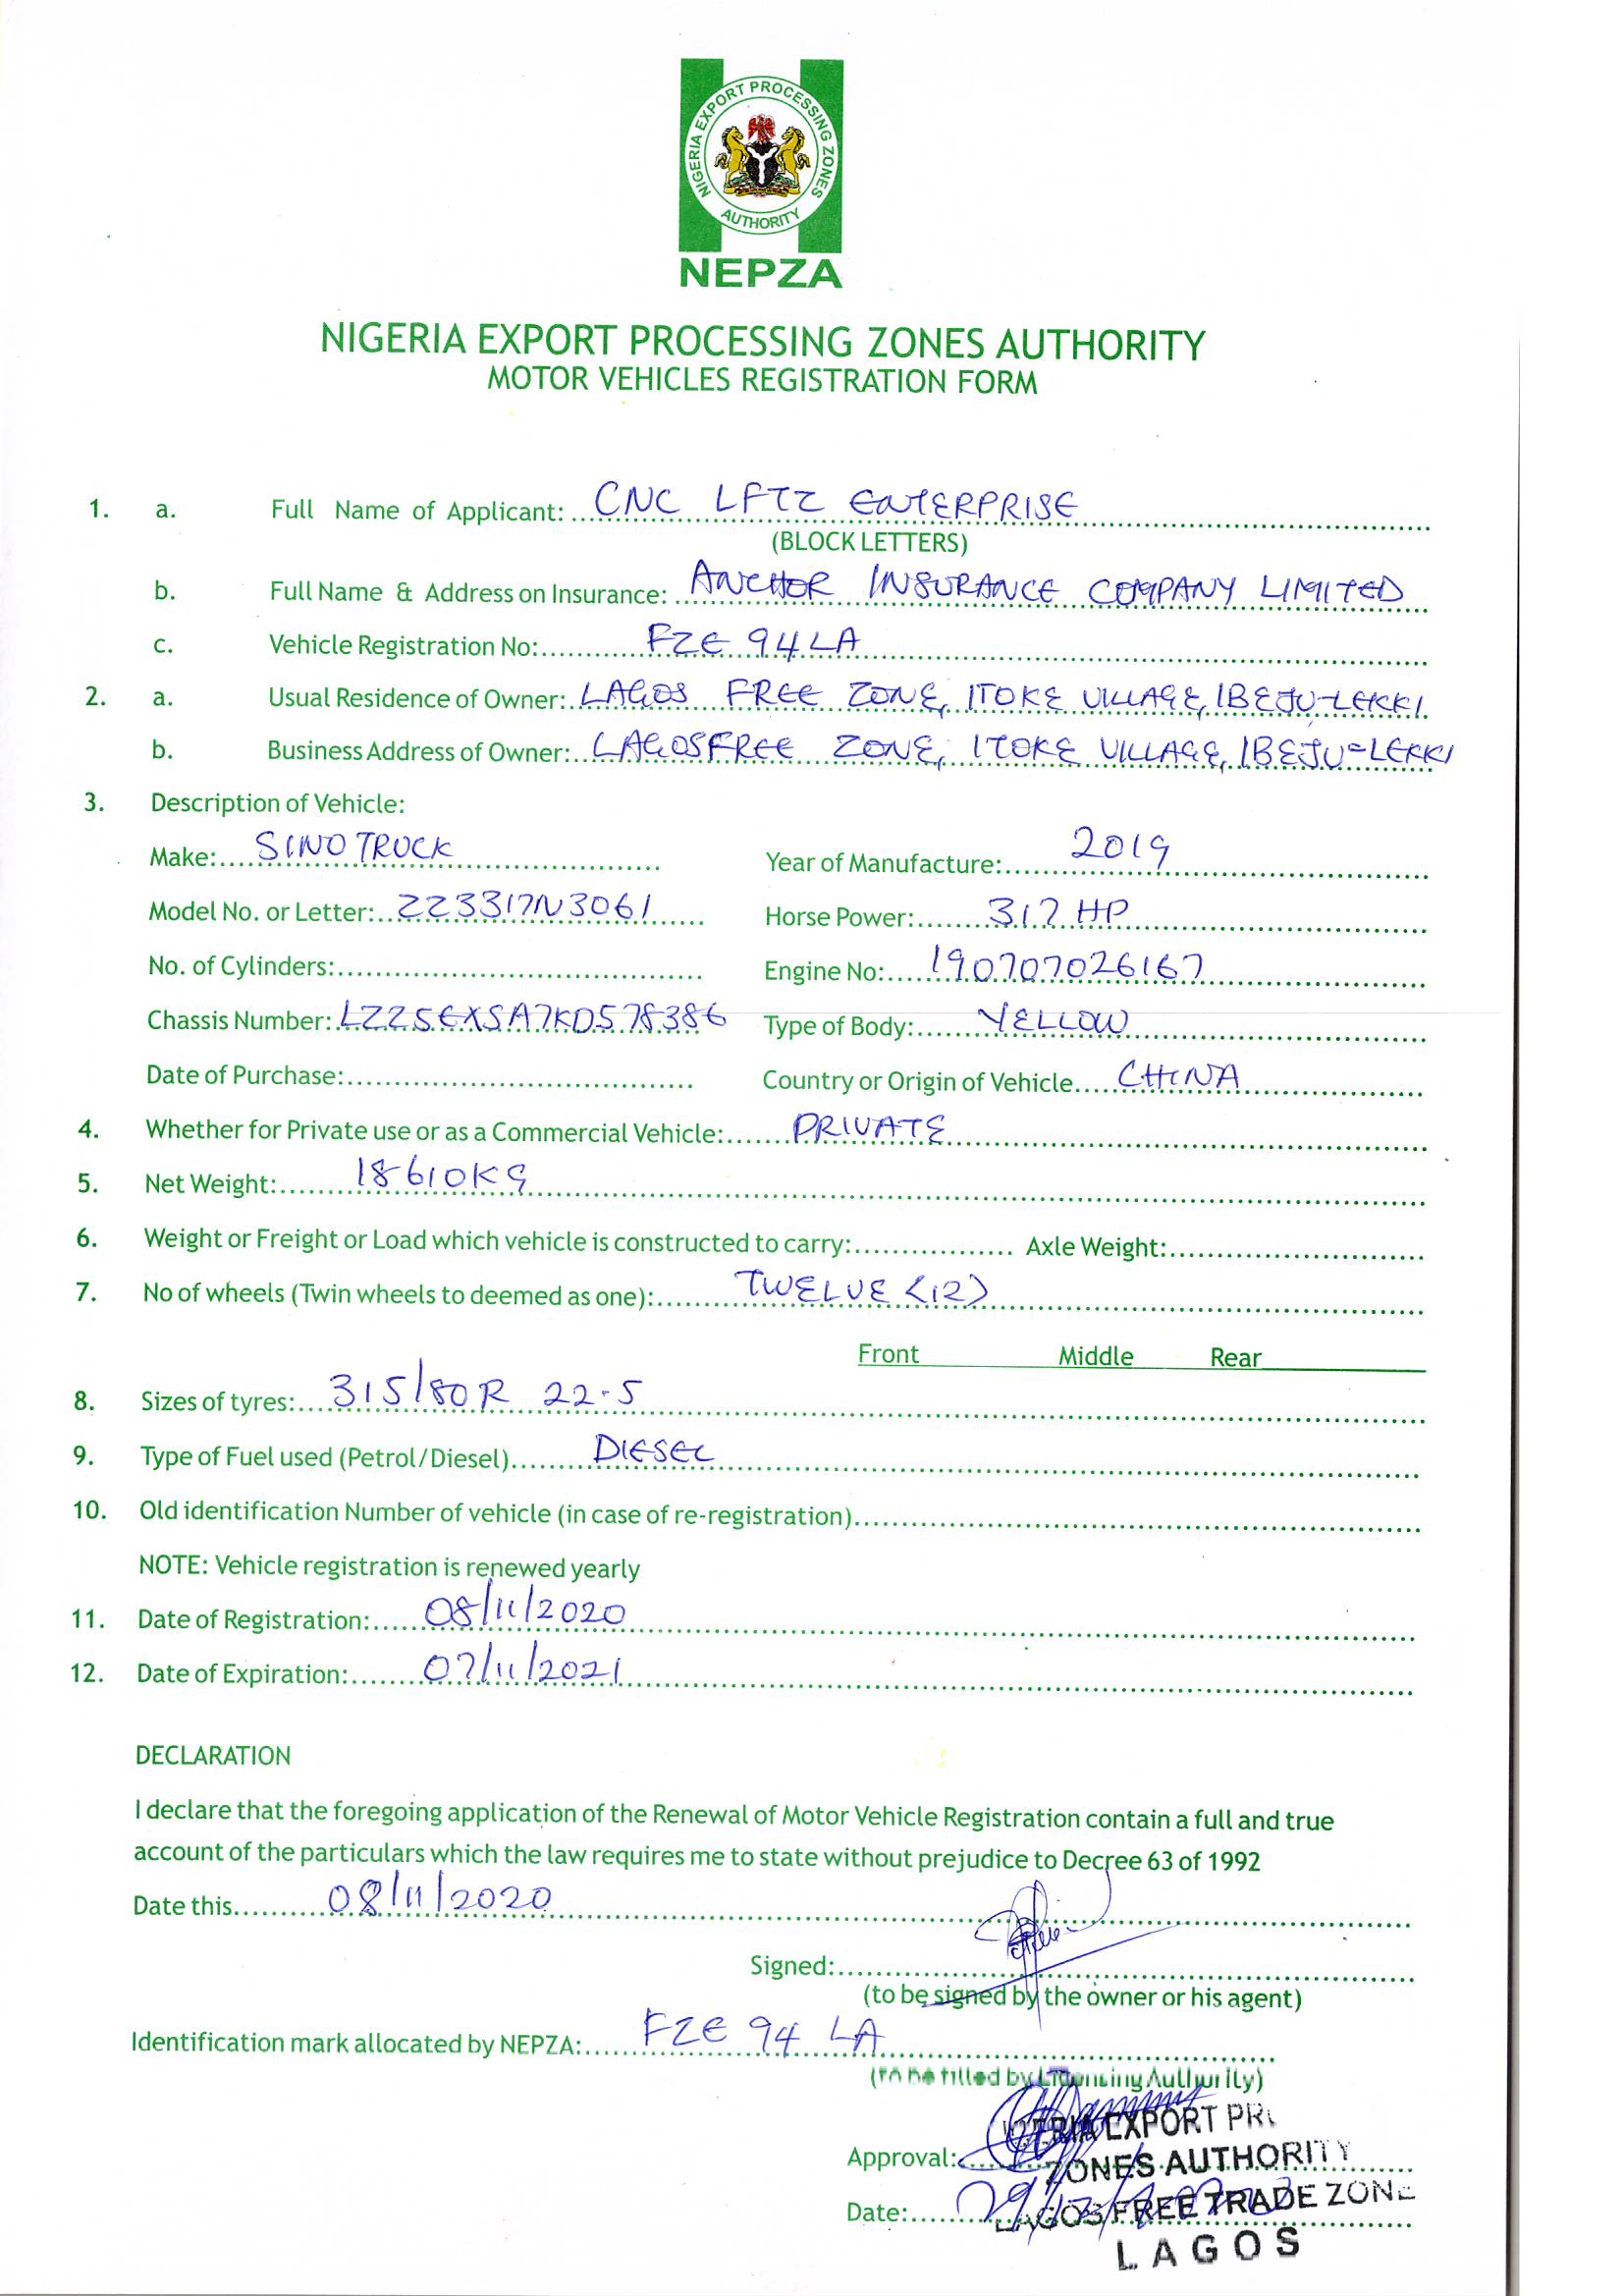 NIGERIA EXPORT PROCESSING ZONES
AUTHORITY
NEPZA
NIGERIA EXPORT PROCESSING ZONES AUTHORITY
MOTOR VEHICLES REGISTRATION FORM
1. a. Full Name of Applicant: CNC LFTZ ENTERPRISE
(BLOCK LETTERS)
b. Full Name & Address on Insurance: ANCHOR INSURANCE COMPANY LIMITED
c. Vehicle Registration No: FZE 94 LA
2. a. Usual Residence of Owner: LAGOS FREE ZONE, ITOKE VILLAGE, IBEJU-LEKKI
b. Business Address of Owner: LAGOS FREE ZONE, ITOKE VILLAGE, IBEJU-LEKKI
3. Description of Vehicle:
Make: SINO TRUCK Year of Manufacture: 2019
Model No. or Letter: ZZ3317N3061 Horse Power: 317 HP
No. of Cylinders: Engine No: 190707026167
Chassis Number: LZZ5EXSA7KD578386 Type of Body: YELLOW
Date of Purchase: Country or Origin of Vehicle CHINA
4. Whether for Private use or as a Commercial Vehicle: PRIVATE
5. Net Weight: 18610KG
6. Weight or Freight or Load which vehicle is constructed to carry: Axle Weight:
7. No of wheels (Twin wheels to deemed as one): TWELVE (12)
Front Middle Rear
8. Sizes of tyres: 315/80R 22.5
9. Type of Fuel used (Petrol/Diesel) DIESEL
10. Old identification Number of vehicle (in case of re-registration)
NOTE: Vehicle registration is renewed yearly
11. Date of Registration: 08/11/2020
12. Date of Expiration: 07/11/2021
DECLARATION
I declare that the foregoing application of the Renewal of Motor Vehicle Registration contain a full and true
account of the particulars which the law requires me to state without prejudice to Decree 63 of 1992
Date this 08/11/2020
Signed:
(to be signed by the owner or his agent)
Identification mark allocated by NEPZA: FZE 94 LA
(to be filled by Licensing Authority)
EXPORT
Approval: ZONES AUTHORITY
Date: LAGOS FREE TRADE ZONE
LAGOS